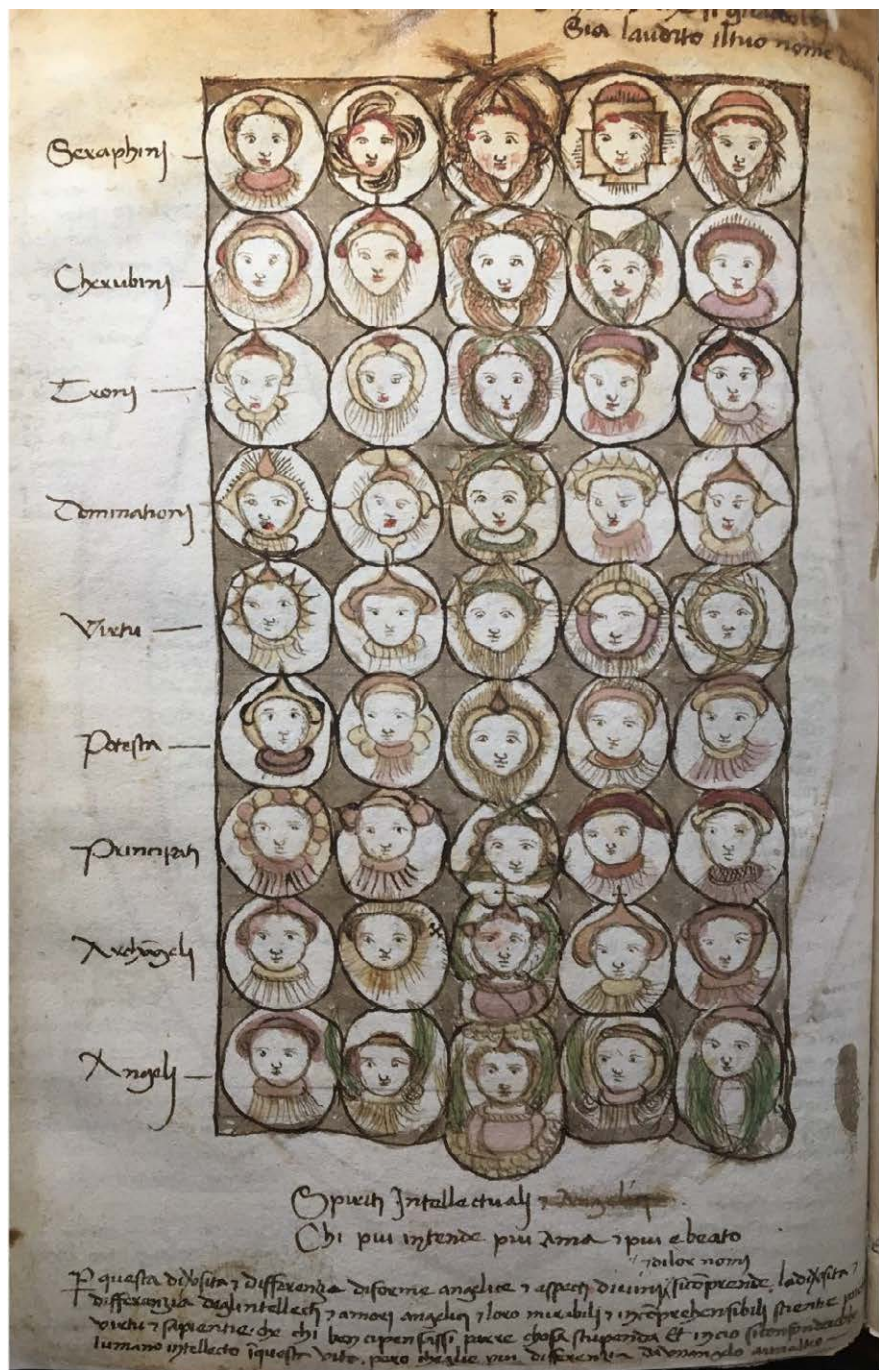 Sia laudito il tuo nome
Seraphinj
Cherubinj
Tronj
Dominationj
Virtu
Potesta
Principatj
Archāgelj
Angelj
Spiriti Intellectualj &
Chi piu intende piu Ama & piu e beato
& di lor nomj
P questa dixosita & differenza di forme angelice & aspecti divinj si cōprende la dixosita &
differanzia degl intellecti & amori angelici & loro mirabili & incōprehensibili scientie
virtu & sapientie che chi ben ci pensassi parre chosa stupenda Et in cio si confonderebbe
lumano intellecto ī questa vita, pero che glie piu differenzia da unangelo